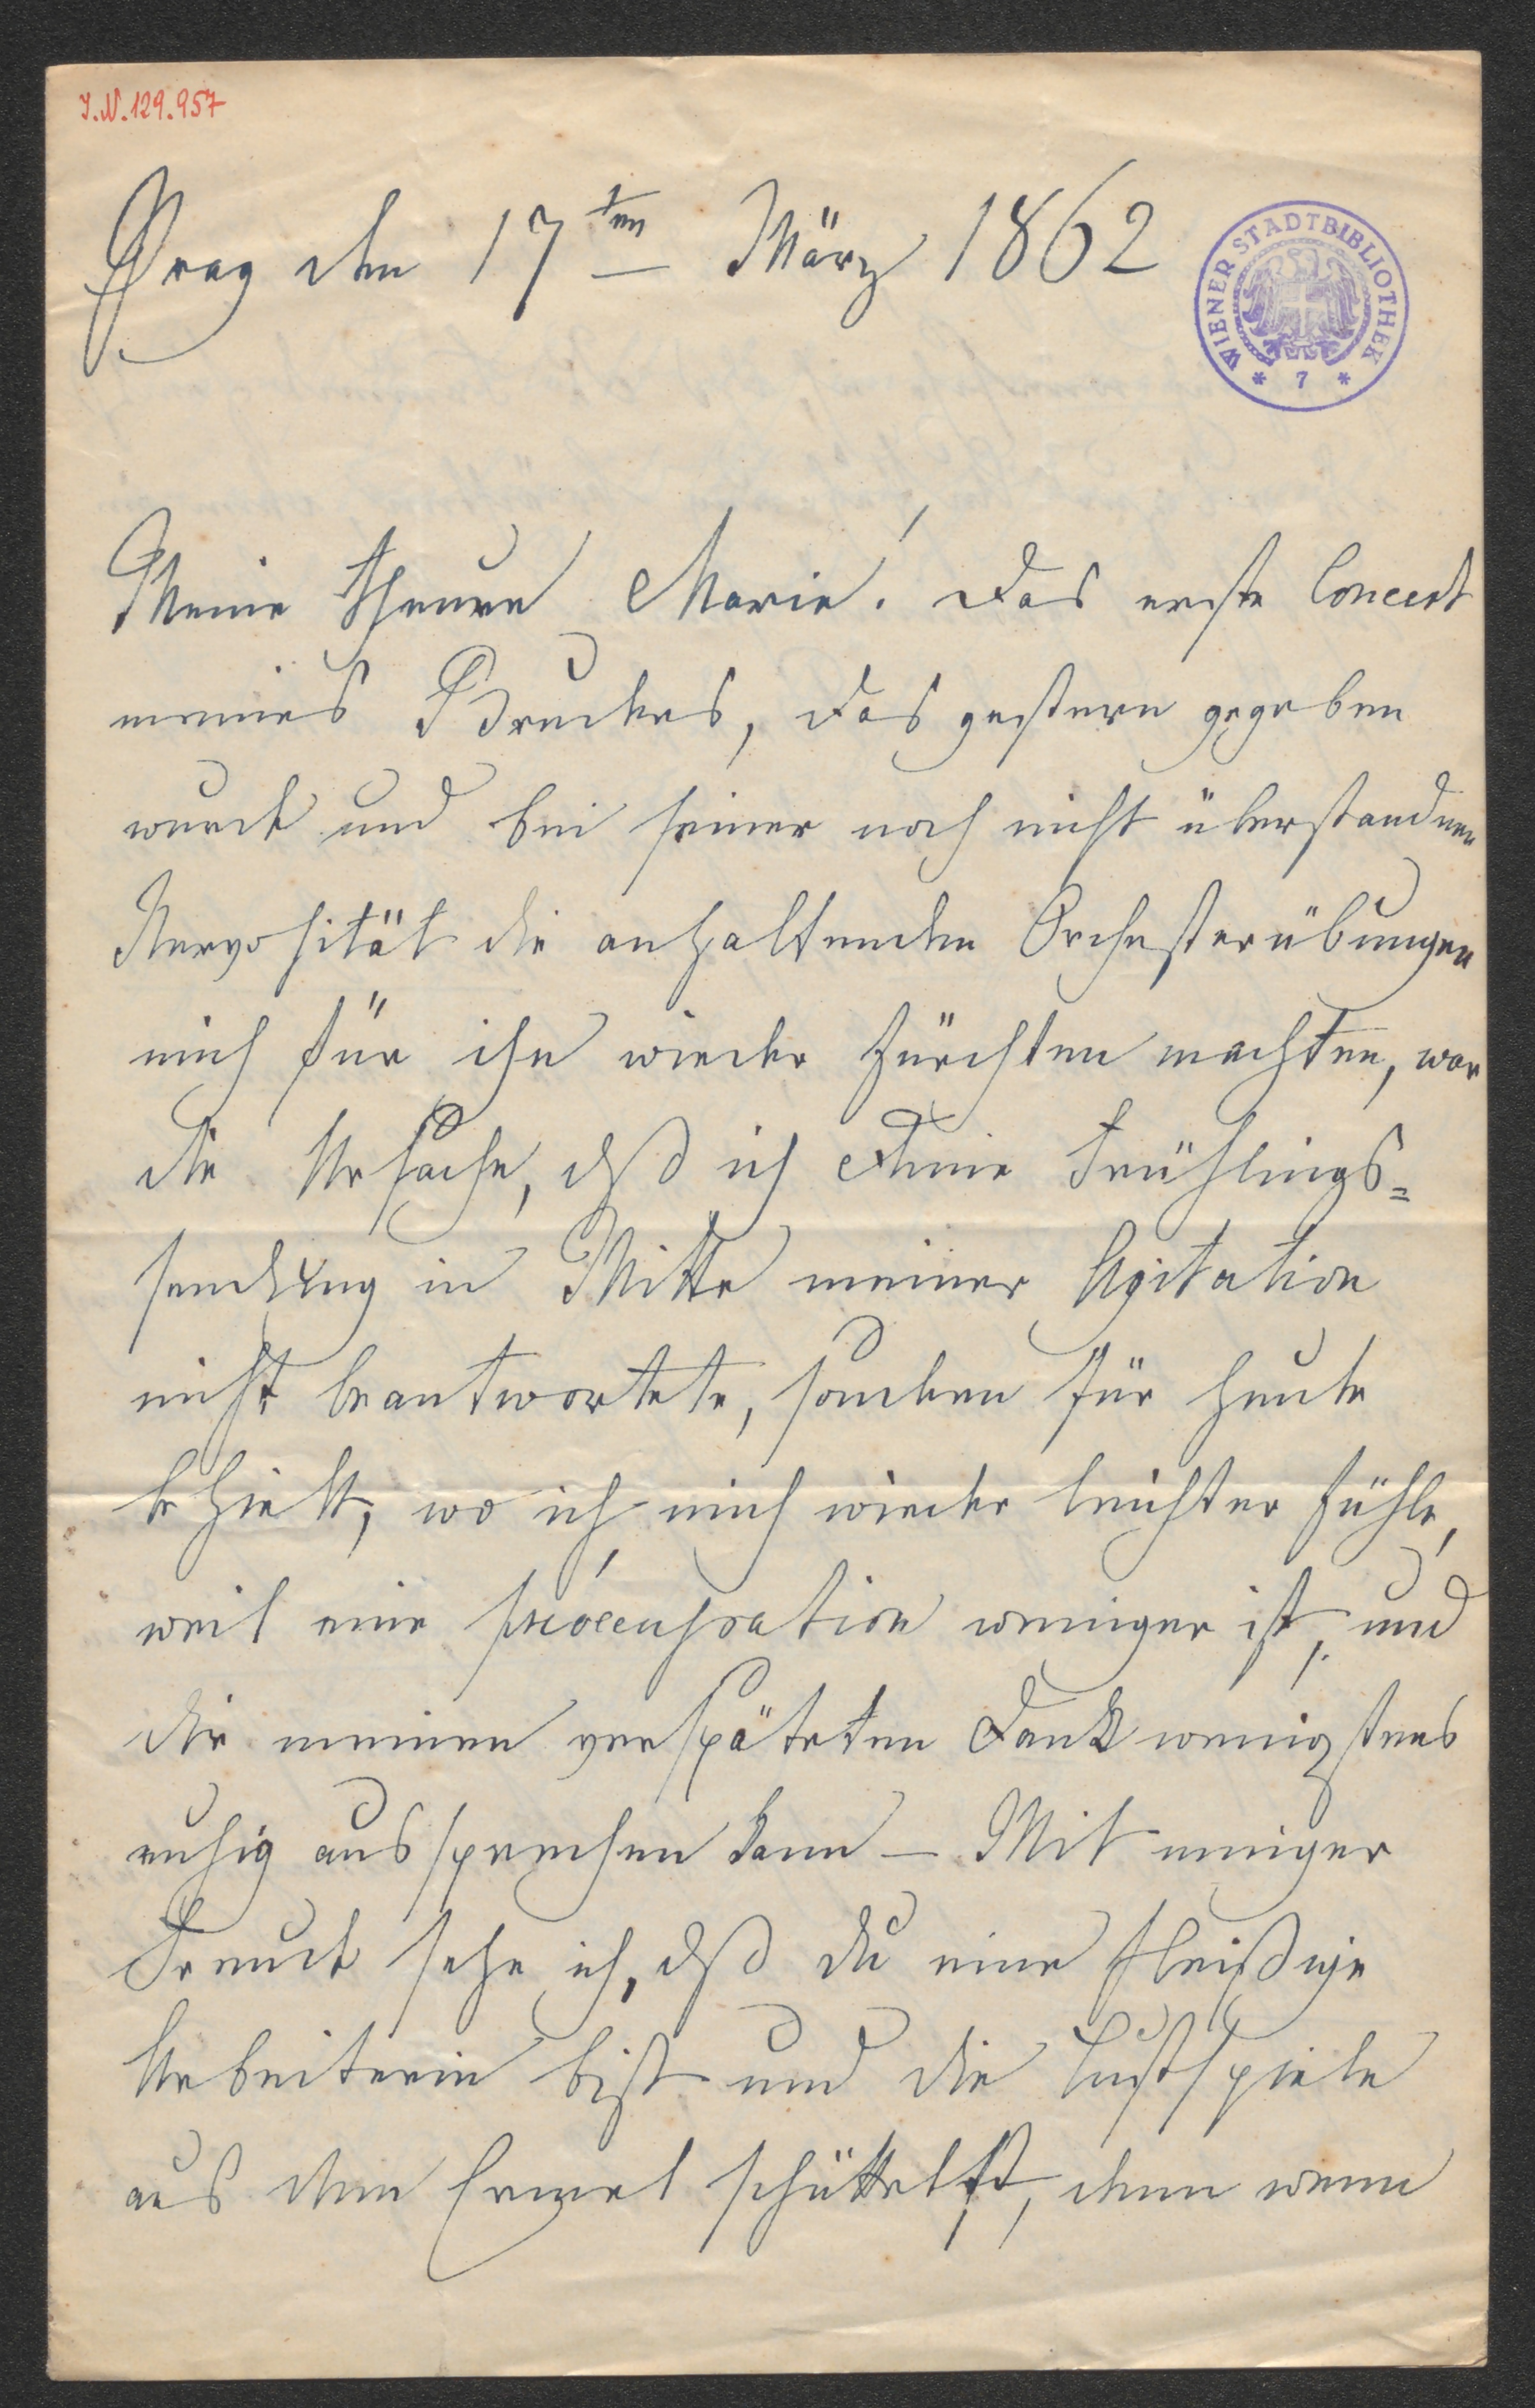 I.N. 129.957
Prag den 17ten März 1862
WIENER STADTBIBLIOTHEK
* 7 *
Meine theure Marie! Das erste Concert
meines Bruders, das gestern gegeben
wurde und bei seiner noch nicht überstandnen
Nervosität die anhaltenden Orchesterübungen
mich für ihn wieder fürchten machten, war
die Ursache, dß ich Deine Frühlings=
sendung in Mitte meiner Agitation
nicht beantwortete, sondern für heute
behielt, wo ich mich wieder leichter fühle,
weil eine präoccupation weniger ist, und
dir meinen verspäteten Dank wenigstens
ruhig aussprechen kann – Mit inniger
Freude sehe ich, dß du eine fleißige
Arbeiterin bist und die Lustspiele
aus dem Ermel schüttelst, denn wenn